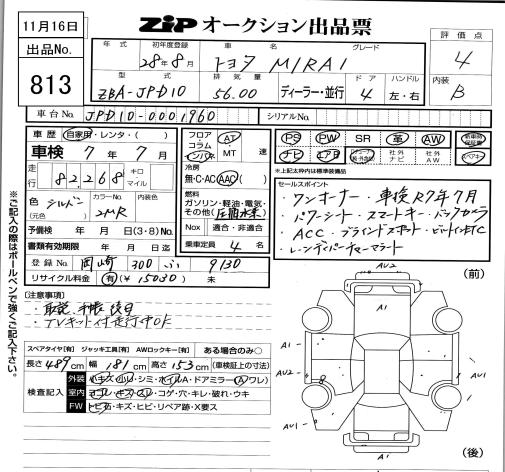 11月16日
ZIP オークション出品票
出品No.
813
評価点
4
内装
B
年式
初年度登録
車名
グレード
28年8月
トヨタ MIRAI
型式
排気量
ドア
ハンドル
ZBA-JPD10
56.00
ディーラー・並行
4
左・右
車台No.
JPD10-0001960
シリアルNo.
車歴 自家用・レンタ・( )
車検 7年7月
走行 82,268 キロ マイル
色 シルバー
(元色)
カラーNo.
2MR
内装色
予備検 年 月 日(3・8)No.
書類有効期限 年 月 日迄
登録No. 岡崎 300 ふ 9130
リサイクル料金 有(¥ 15030) 未
フロア コラム インパネ
AT
・MT
速
冷房
無・C・AC・AAC( )
燃料
ガソリン・軽油・電気・
その他(圧縮水素)
Nox 適合・非適合
乗車定員 4 名
PS PW SR 革 AW
ナビ
社外ナビ
社外AW
※上記太枠内は標準装備品
セールスポイント
・ワンオーナー ・車検R7年7月
・パワーシート・スマートキー・バックカメラ
・ACC・ブラインドスポット・ビルトインETC
・レーンディパーチャーアラート
【注意事項】
・取説、手帳後日
・TVキット付走行中OK
スペアタイヤ[有] ジャッキ工具[有] AWロックキー[有] ある場合のみ○
長さ 489cm 幅 181cm 高さ 153cm (車検証上の寸法)
検査記入
外装 小キズ・小凹・シミ・ホイルA・ドアミラー(A・ワレ)
室内 ヨゴレ・キズ・スレ・コゲ・穴・キレ・破れ・ウキ
FW トビ石・キズ・ヒビ・リペア跡・X要ス
※ご記入の際はボールペンで強くご記入下さい。
(前)
AU2
A1
A1
A1
AU2
A1
AU1
AU1
(後)